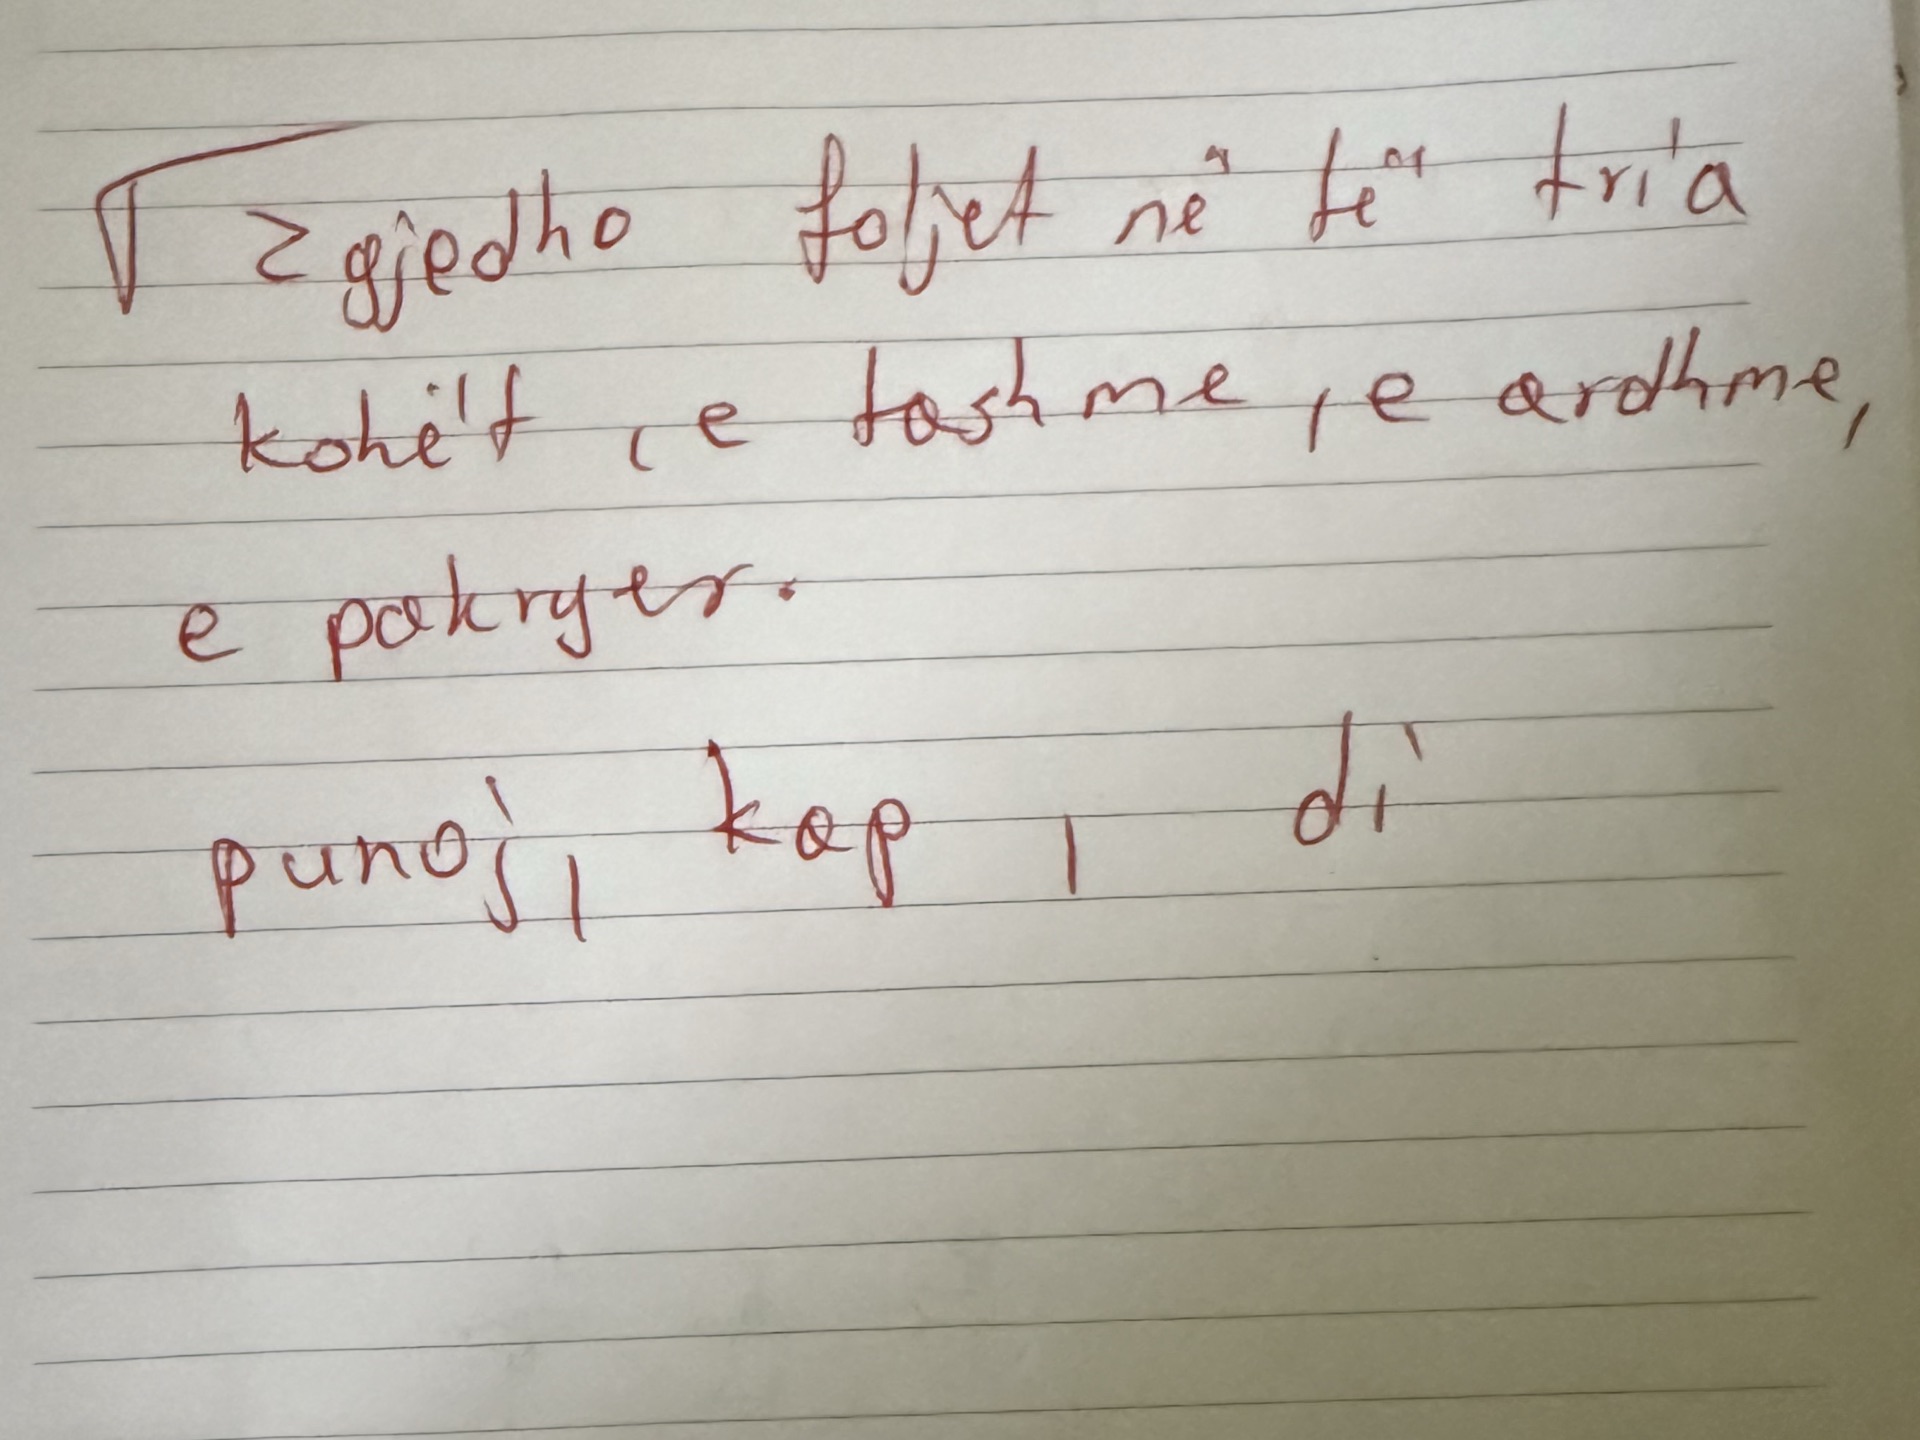 Zgjedho foljet në të tria
kohët, e tashme, e ardhme,
e pakryer.
punoj, kap, di